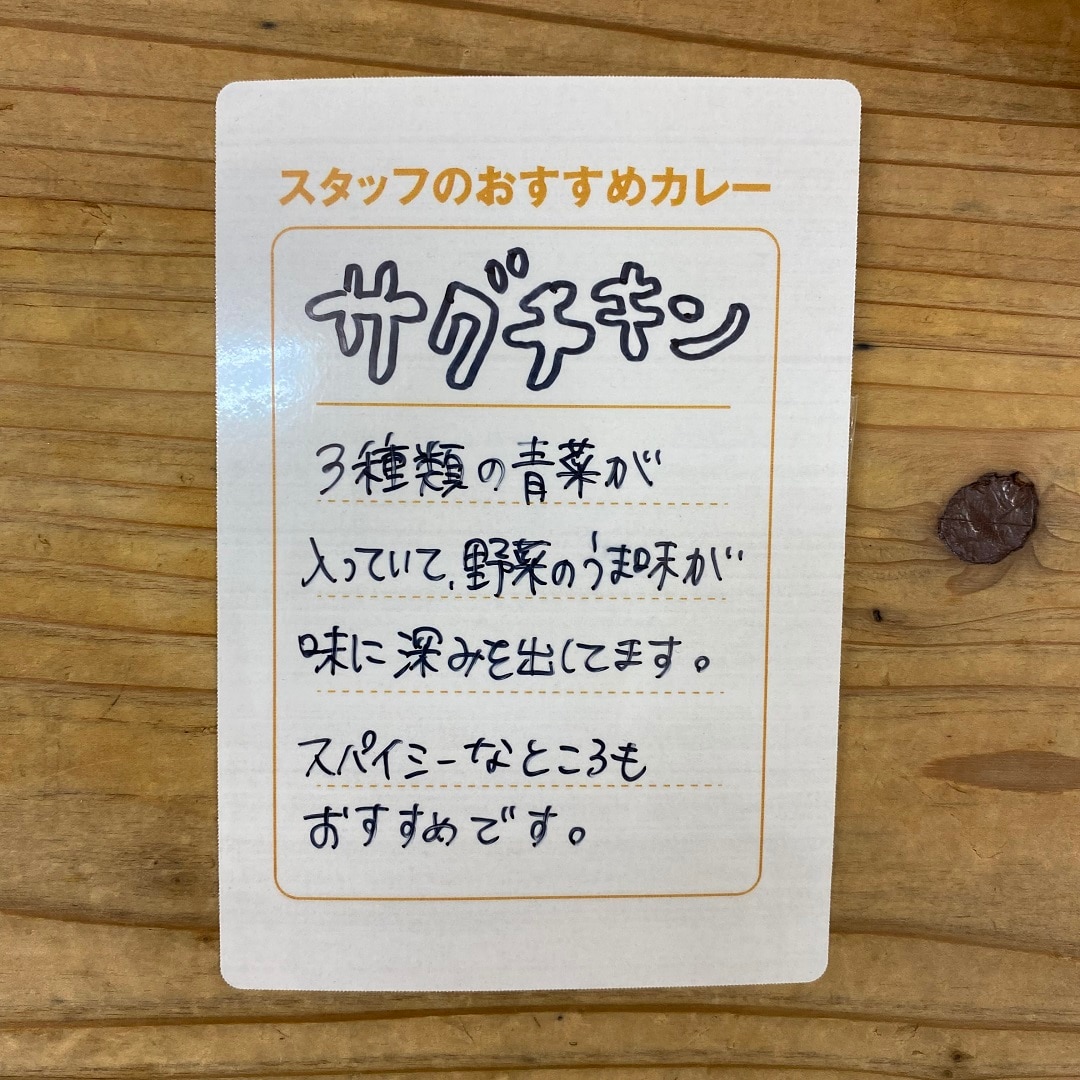 スタッフのおすすめカレー
サグチキン
3種類の青菜が
入っていて、野菜のうま味が
味に深みを出してます。
スパイシーなところも
おすすめです。